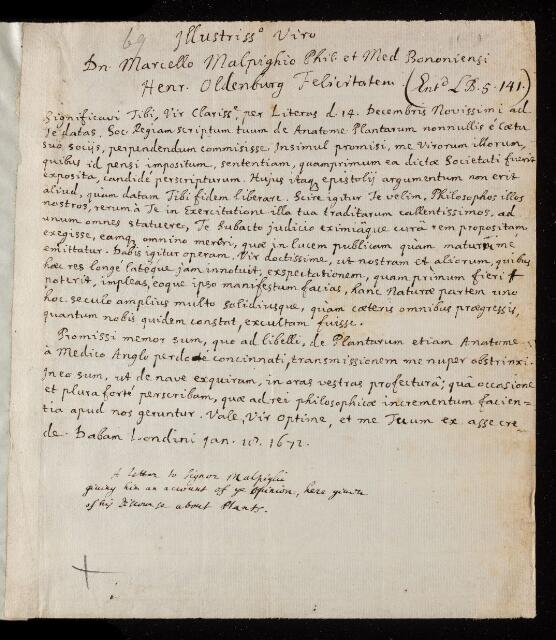 69 Illustriss.o Viro
Dn. Marcello Malpighio Phil. et Med Bononiensi
Henr. Oldenburg Felicitatem (Ent.d L.B. 5. 141.)
Significavi Tibi, Vir Clariss.e, per Literas d. 14. Decembris Novissimi ad
Te datas, Soc. Regiam scriptum tuum de Anatome Plantarum nonnullis è Cœtu
suo socijs, perpendendum commisisse. Insimul promisi, me Virorum illorum,
quibus id pensi impositum, sententiam, quamprimum ea dictæ Societati fuerit
exposita, candidé perscripturum. Hujus itaq epistolij argumentum non erit
aliud, quàm datam Tibi fidem liberare. Scire igitur Te velim, Philosophos illos
nostros, rerum à Te in Exercitatione illa tua traditarum callentissimos, ad
unum omnes statuere, Te subacto judicio eximiaque curâ rem propositam
exegisse, eamq omnino mereri, quæ in lucem publicam quàm maturrime
emittatur. Dabis igitur operam, Vir doctissime, ut nostram et aliorum, quibus
hæc res longè latèque jam innotuit, exspectationem, quam primum fieri
poterit, impleas, eoque ipso manifestum facias, hanc Naturæ partem uno
hoc seculo amplius multo solidiusque, quàm cæteris omnibus prægressis,
quantum nobis quidem constat, excultam fuisse.
Promissi memor sum, quo ad libelli, de Plantarum etiam Anatome
à Medico Anglo perdocte concinnati, transmissionem me nuper obstrinxi.
In eo sum, ut de nave exquiram, in oras vestras profecturâ; quâ occasione
et plura forte perscribam, quæ ad rei philosophicæ incrementum facien-
tia apud nos geruntur. Vale, Vir Optime, et me Tuum ex asse cre-
de. Dabam Londini Jan. 1672.
A Letter to Signor Malpighi
giving him an account of ye opinion, here given
of his Discourse about Plants.